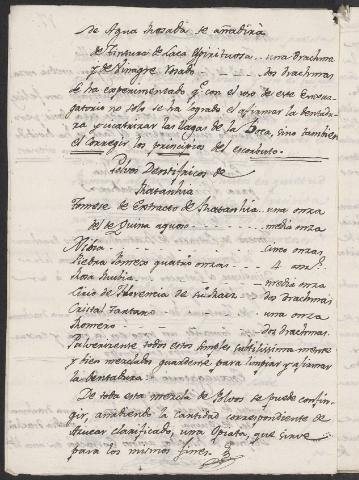 de Agua Rosada se añadirà
de Tintura de Laca Espirituosa. una Drachma
y de Vinagre Rosado - - - - dos drachmas
se ha experimentado q.e con el uso de este
gatorio no solo se ha logrado el afirmar la dentadu
ra y cicatrizar las llagas de la Boca, sino tambien
el Corregir los principios del escorbuto.
Polvos Dentifricos de
Ratanhia
Tomese de Extracto de Ratanhia .. una onza
del de Quina aquoso - - - - media onza
- - - - cinco onzas
Piedra Pomez quatro onzas - - - 4 onz.s
Rosa Rubia - - - - media onza
Lirio de Florencia de - - dos drachmas
Cristal Tartaro - - - una onza
Romero - - - - dos drachmas.
Pulverizense todos estos simples sutilissimamente
y bien mezclados guardense para limpiar y afirmar
la Dentadura
De toda esta mezcla de Polvos se puede confin
gir, añadiendo la cantidad correspondiente de
Azucar clarificado, una Opiata, que sirve
para los mismos fines.